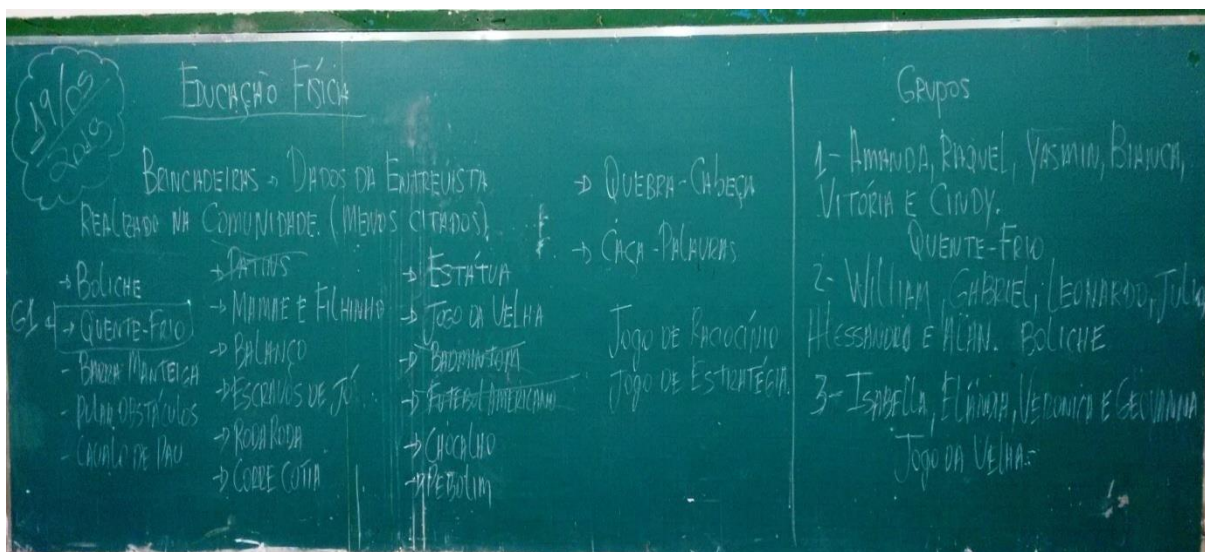 19/05
2015
EDUCAÇÃO FÍSICA
BRINCADEIRAS → DADOS DA ENTREVISTA
REALIZADA NA COMUNIDADE. (MENOS CITADOS).
→ BOLICHE
G1 → QUENTE-FRIO
- BARRA MANTEIGA
- PULAR OBSTÁCULOS
- CAVALO DE PAU
→ PATINS
→ MAMÃE E FILHINHO
→ BALANÇO
→ ESCRAVOS DE JÓ
→ RODA RODA
→ CORRE COTIA
→ ESTÁTUA
→ JOGO DA VELHA
→ BADMINTOM
→ FUTEBOL AMERICANO
→ CHOCALHO
→ PEBOLIM
→ QUEBRA-CABEÇA
→ CAÇA-PALAVRAS
JOGO DE RACIOCÍNIO
JOGO DE ESTRATÉGIA.
GRUPOS
1- AMANDA, RAQUEL, YASMIN, BIANCA,
VITÓRIA E CINDY.
QUENTE-FRIO
2- WILLIAM, GABRIEL, LEONARDO,
ALESSANDRA E ALAN. BOLICHE
3- ISABELLA, VERONICA E GEOVANNA
JOGO DA VELHA